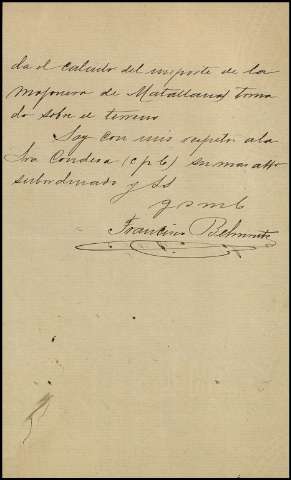 da el calculo del importe de la
mojonera de Matallana toma
do sobre el terreno
Soy con mis respetos a la
Sra Condesa (c p b) su mas atto
subordinado y s s
q s m b
Francisco Belmonte